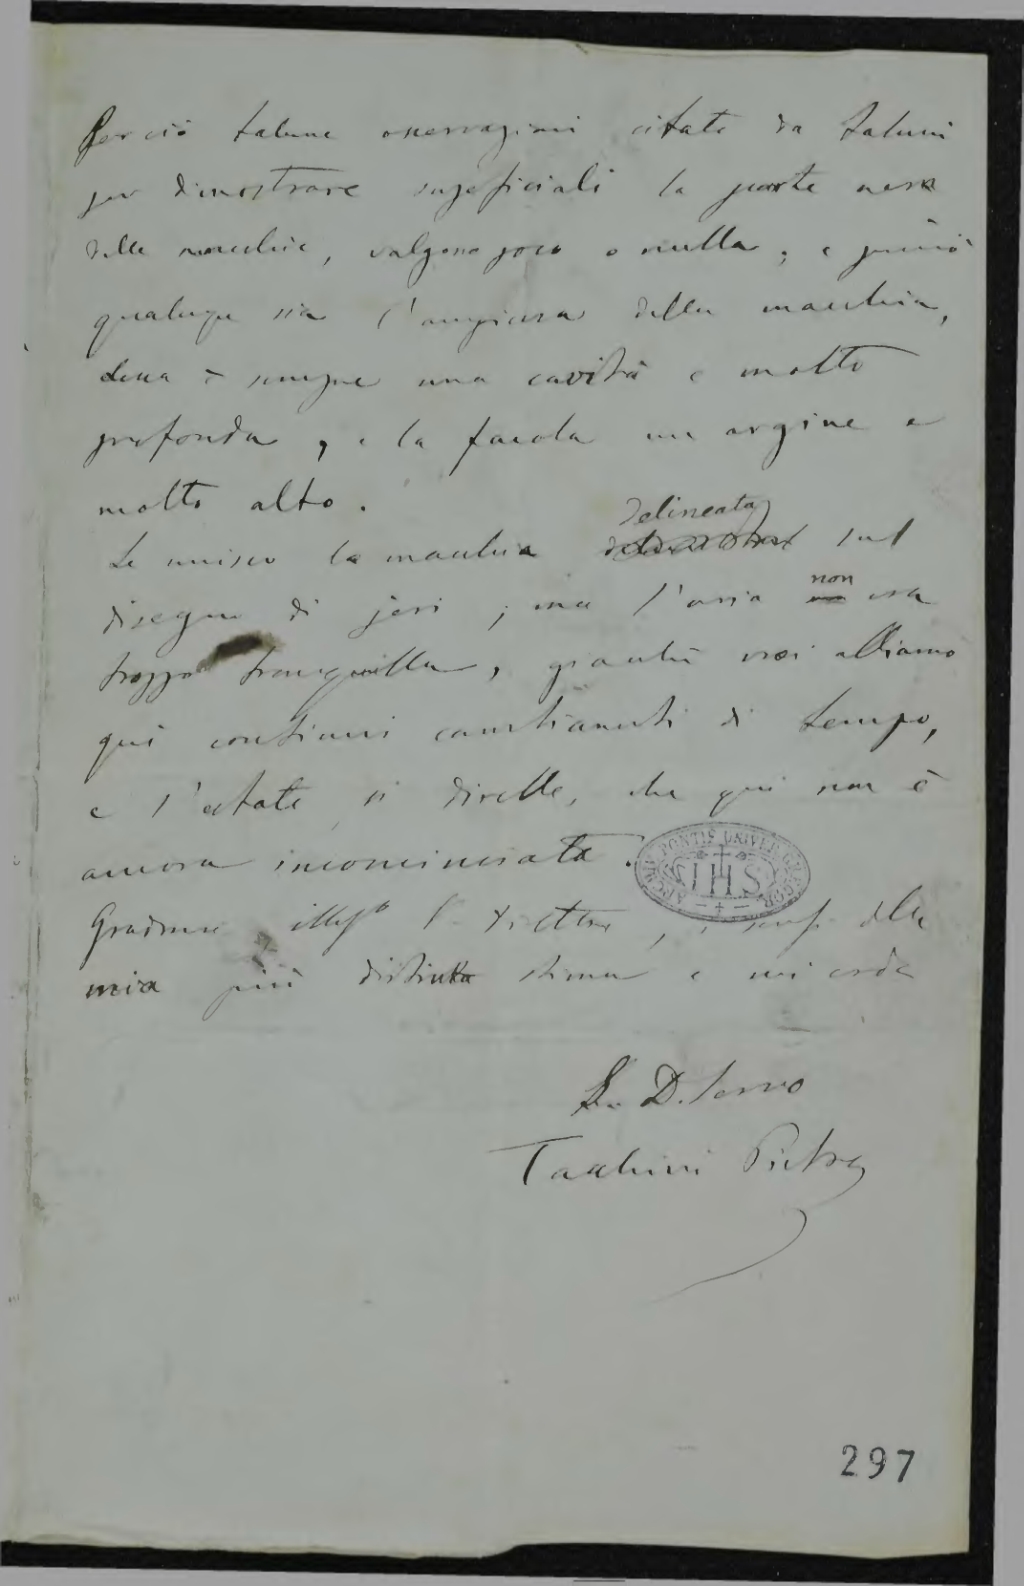 Perciò talune osservazioni citate da taluni
per dimostrare superficiali la parte nera
delle macchie, valgono poco o nulla; e perciò
qualunque sia l'ampiezza della macchia,
dessa è sempre una cavità e molto
profonda, e la facola un argine e
molto alto.
Le unisco la macchia delineata sul
disegno di jeri; ma l'aria non era
troppo tranquilla, giacchè noi abbiamo
qui continui cambiamenti di tempo,
e l'estate si direbbe, che qui non è
ancora incominciata.
Gradisca illmo Sr Direttore, i sensi della
mia più distinta stima e mi creda
Suo D. Servo
Tacchini Pietro
ARCHIV. PONTIF. UNIVER. GREGOR.
IHS
297